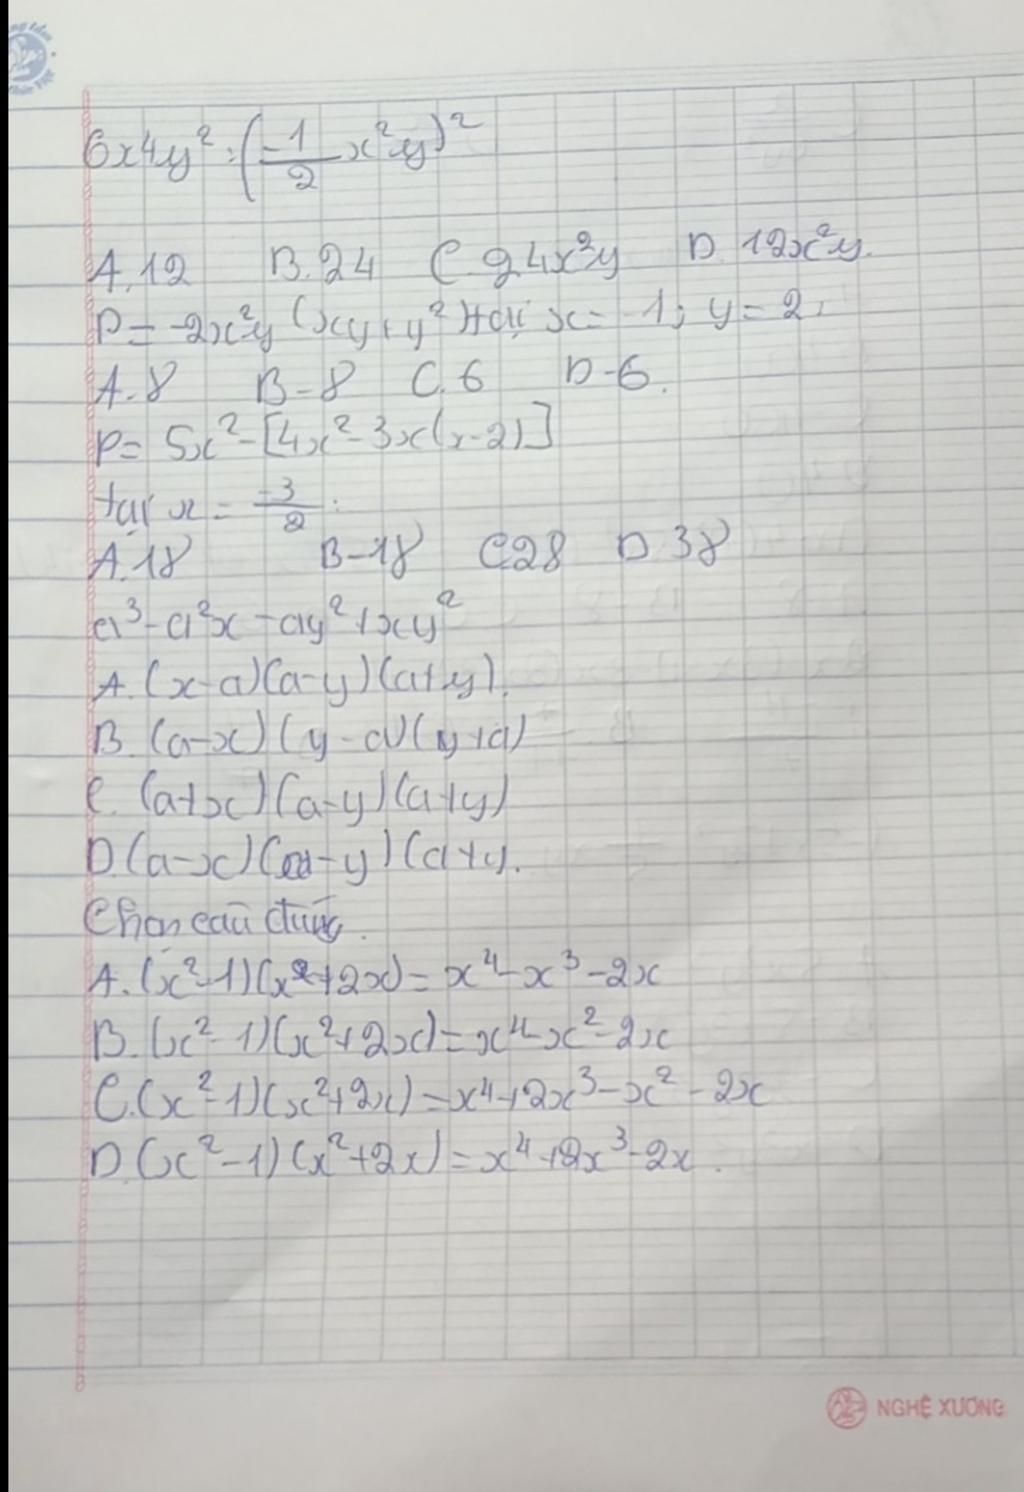 6x⁴y² : (-1/2 x²y)²
A. 12 B. 24 C. 24x²y D. 12x²y.
P = -2x²y (xy + y²) tại x = -1; y = 2.
A. 8 B - 8 C. 6 D - 6.
P = 5x² - [4x² - 3x(x-2)]
tại x = -3/2 :
A. 18 B - 18 C 28 D 38
a³ - a²x - ay² + xy²
A. (x-a)(a-y)(a+y).
B. (a-x)(y-a)(y+a)
C. (a+x)(a-y)(a+y)
D. (a-x)(a-y)(a+y.
Chọn câu đúng.
A. (x²-1)(x²+2x) = x⁴ - x³ - 2x
B. (x²-1)(x²+2x) = x⁴ - x² - 2x
C. (x²-1)(x²+2x) = x⁴ + 2x³ - x² - 2x
D. (x²-1)(x²+2x) = x⁴ + 2x³ - 2x.
NGHỆ XƯƠNG